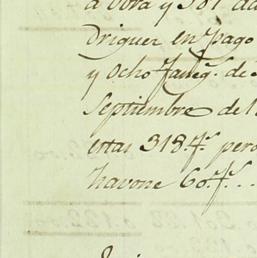 a Dora y 581 da
driguez en pago
y ocho faneg.s de
Septiembre de 1
estas 318.f.s pero
havone 60.f.s